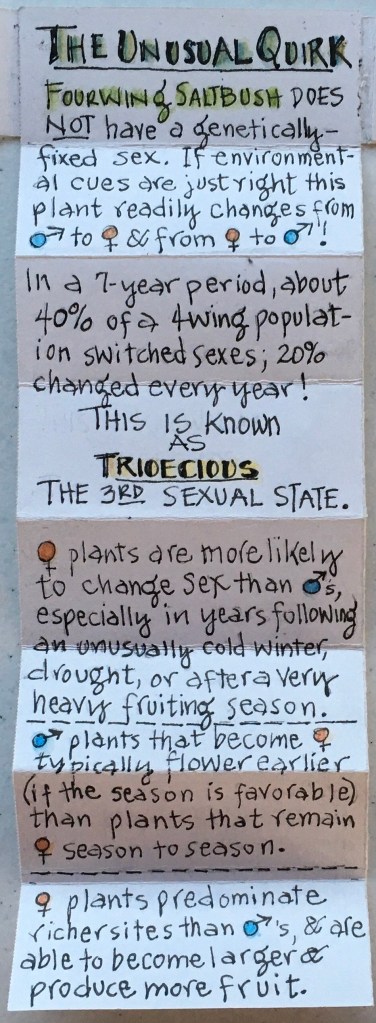 THE UNUSUAL QUIRK
FOURWING SALTBUSH DOES
NOT have a genetically-
fixed sex. If environment-
al cues are just right this
plant readily changes from
♂ to ♀ & from ♀ to ♂!!
In a 7-year period, about
40% of a 4wing populat-
ion switched sexes; 20%
changed every year!
THIS IS Known
AS
TRIOECIOUS
THE 3RD SEXUAL STATE.
♀ plants are more likely
to change sex than ♂'s,
especially in years following
an unusually cold winter,
drought, or after a very
heavy fruiting season.
♂ plants that become ♀
typically flower earlier
(if the season is favorable)
than plants that remain
♀ season to season.
♀ plants predominate
richer sites than ♂'s, & are
able to become larger &
produce more fruit.